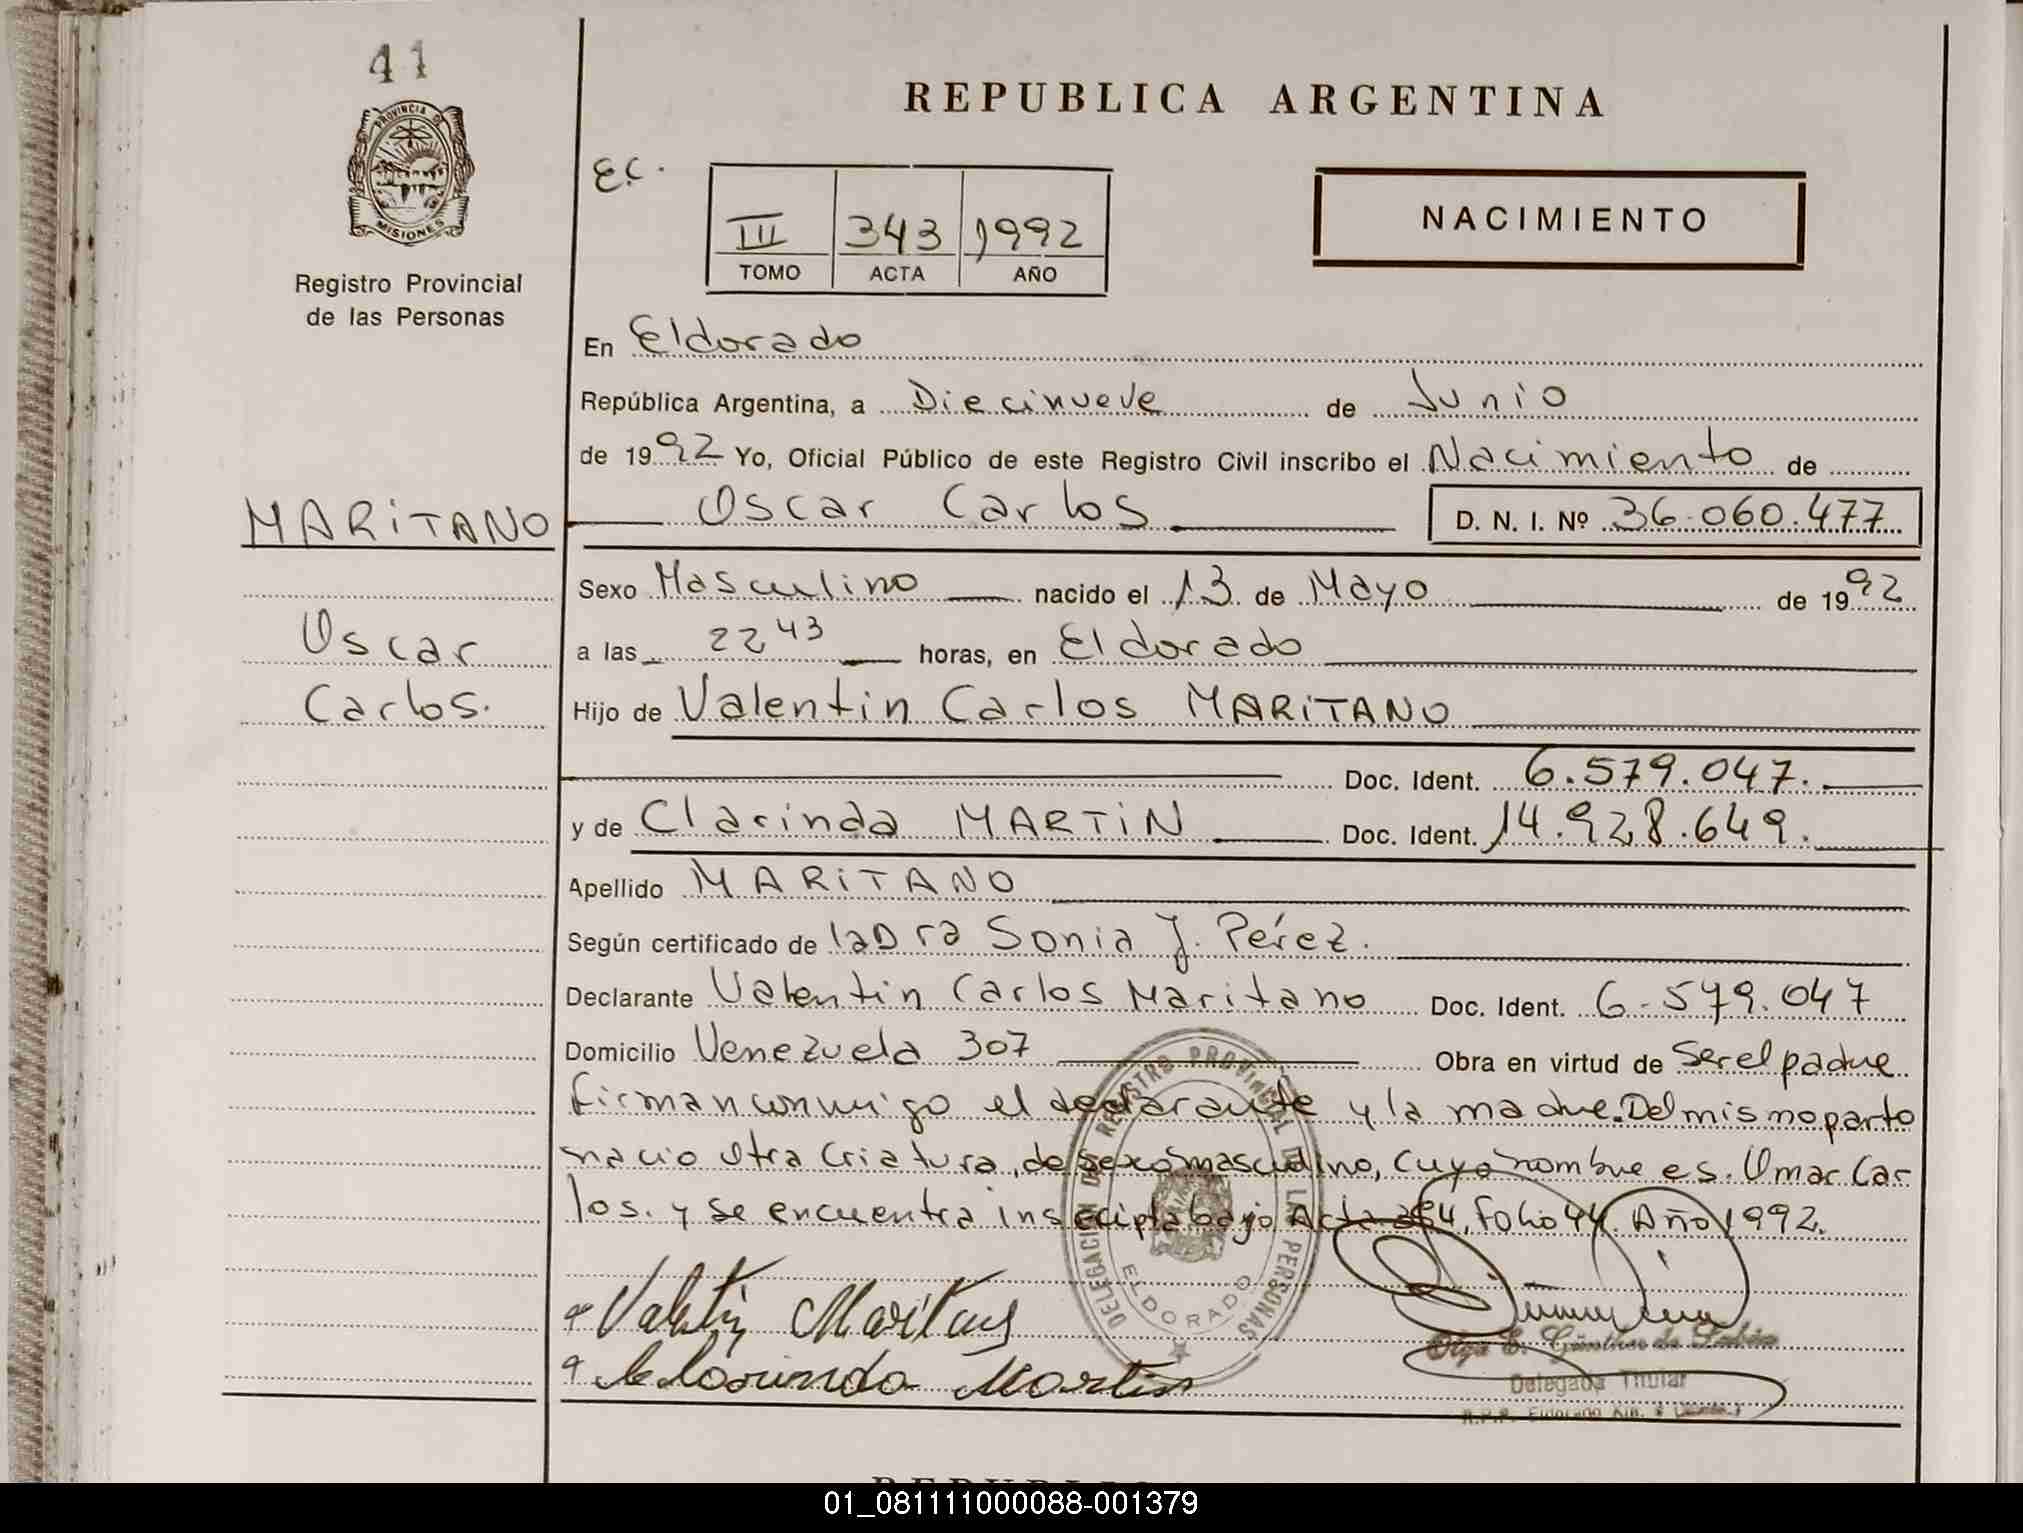 41
PROVINCIA DE
MISIONES
Registro Provincial
de las Personas
REPUBLICA ARGENTINA
E.C.
III 343 1992
TOMO ACTA AÑO
NACIMIENTO
En Eldorado
República Argentina, a Diecinueve de Junio
de 1992 Yo, Oficial Público de este Registro Civil inscribo el Nacimiento de
MARiTANO
Oscar Carlos D. N. I. Nº 36.060.477
Sexo Masculino nacido el 13 de Mayo de 1992
Oscar
a las 22 43 horas, en Eldorado
Carlos.
Hijo de Valentin Carlos MARiTANO
Doc. Ident. 6.579.047.
y de Clarinda MARTiN Doc. Ident. 14.928.649.
Apellido MARiTANO
Según certificado de la Dra Sonia J. Pérez.
Declarante Valentin Carlos Maritano Doc. Ident. 6.579.047
Domicilio Venezuela 307 Obra en virtud de Ser el padre
firman conmigo el declarante y la madre. Del mismo parto
nacio otra criatura, de sexo masculino, cuyo nombre es. Omar Car
los. y se encuentra inscripta bajo Acta Folio 44. Año 1992.
DELEGACION DE REGISTRO PROVINCIAL DE LAS PERSONAS
ELDORADO
Valentin Maritano
Clarinda Martin
Olga E. Günther de
Delegada Titular
R.P.P. Eldorado Km. 
REPUBLIC
01_081111000088-001379